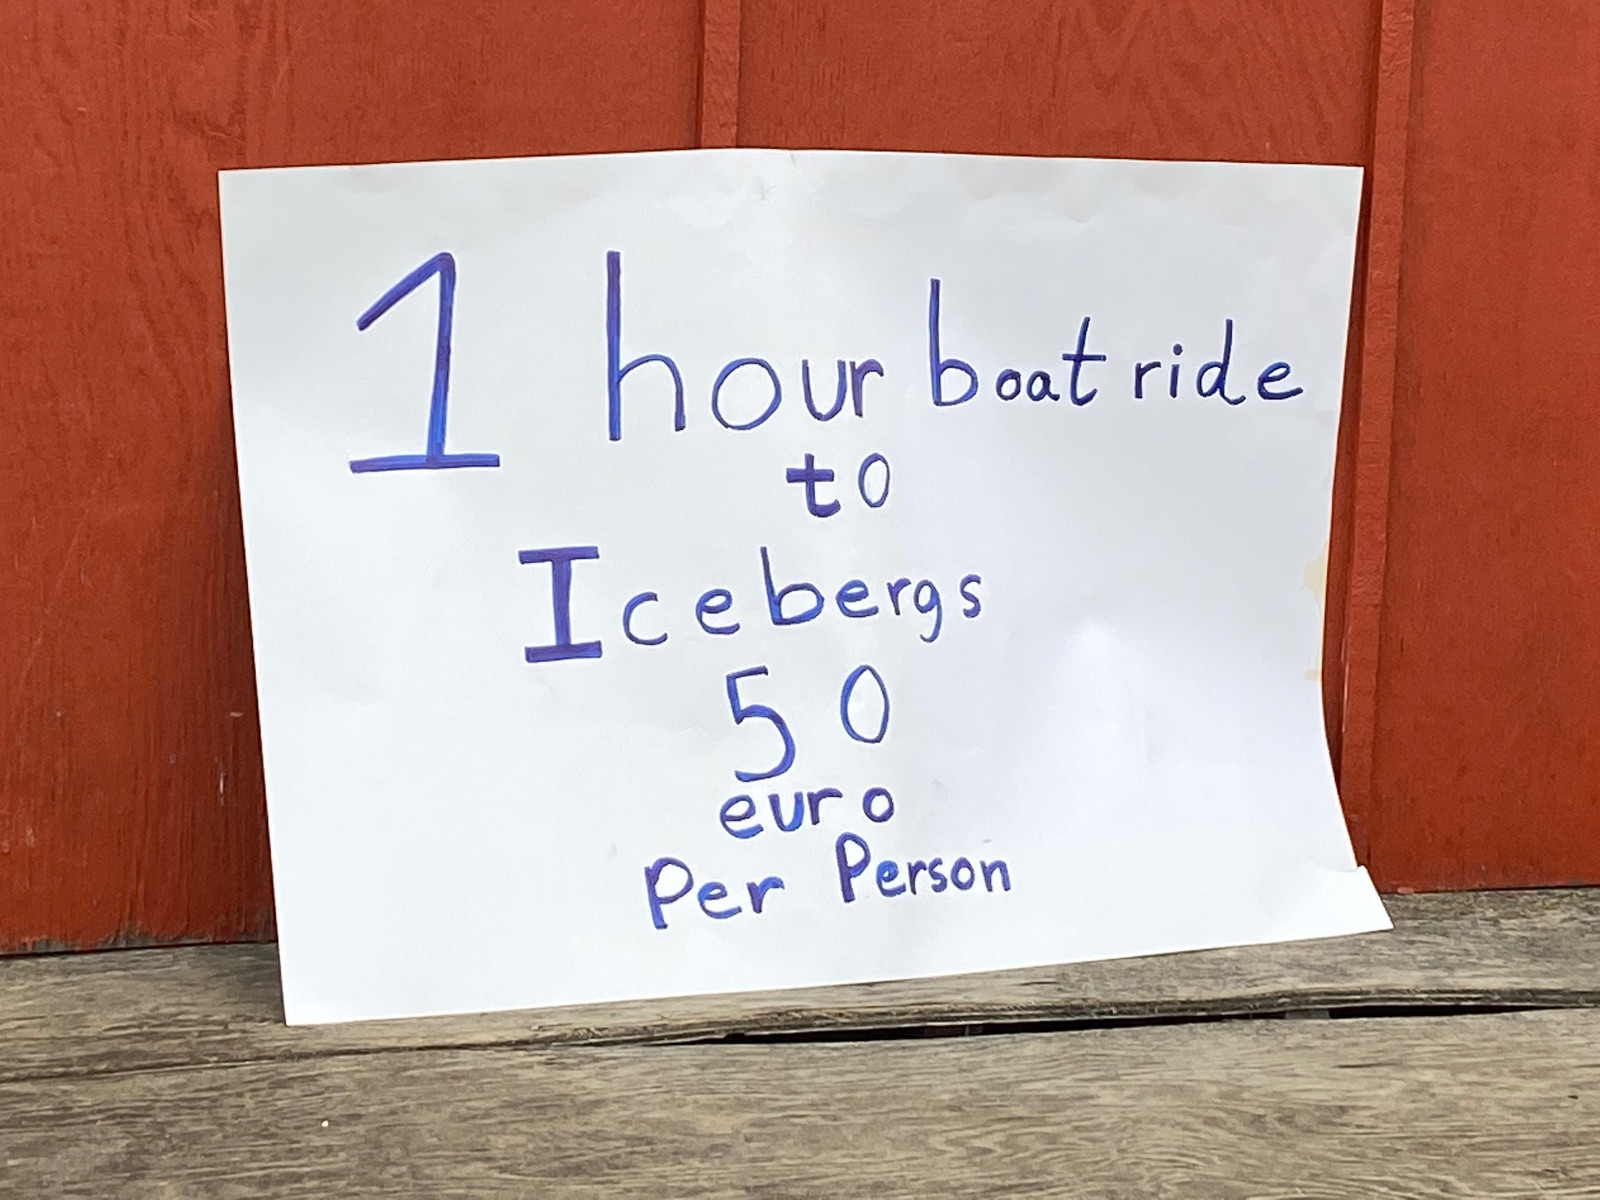 1 hour boat ride
to
Icebergs
50
euro
Per Person